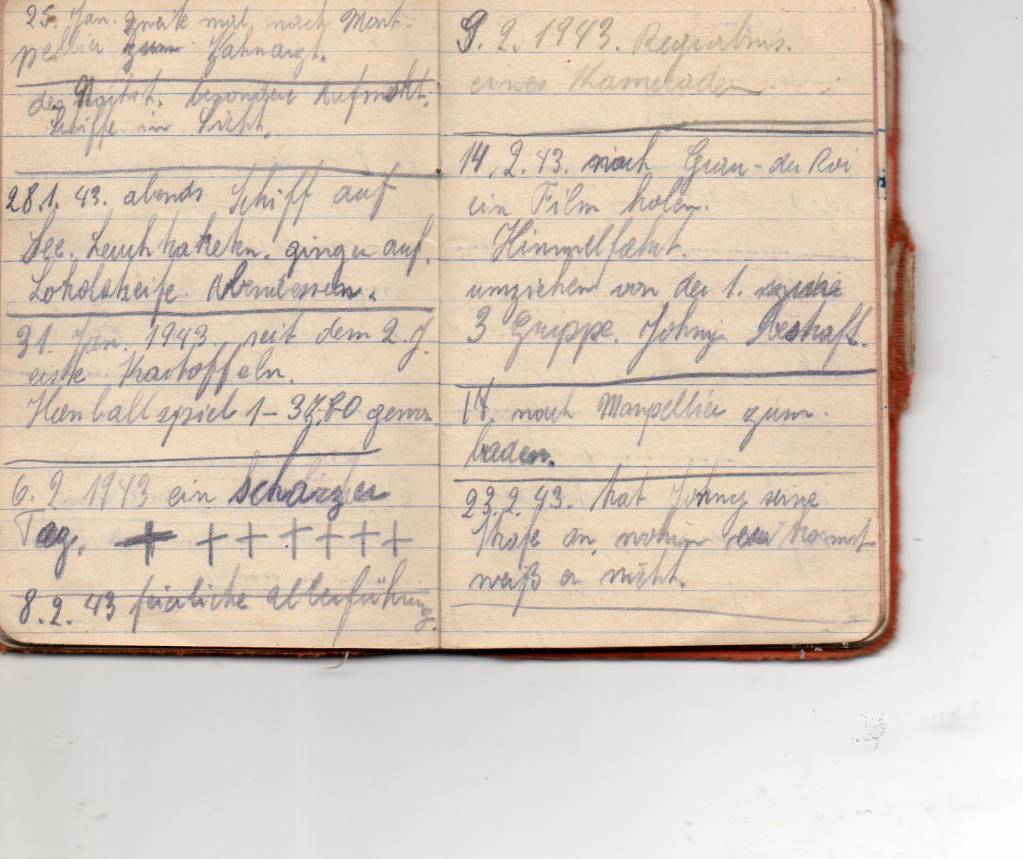 25. Jan. zweite mal nach Mont-
pellier zum Zahnarzt.
des Nachts. besondere Aufmerkt.
Schiffe in Sicht.
28.1.43. abends Schiff auf
See. Leuchtraketen. gingen auf.
Abendessen.
31. Jan. 1943. seit dem 2. J.
erste Kartoffeln.
1-3
6.2.1943 ein schwarzer
Tag. + + + + + + +
8.2.43 feierliche
9.2.1943.
eines Kameraden
14.2.43. nach Grau-du Roi
ein Film holen.
Himmelfahrt.
umziehen von der 1.
3 Gruppe. Johny
nach Monpellier zum.
baden.
23.2.43. hat Johny seine
an, wohin
weiß er nicht.